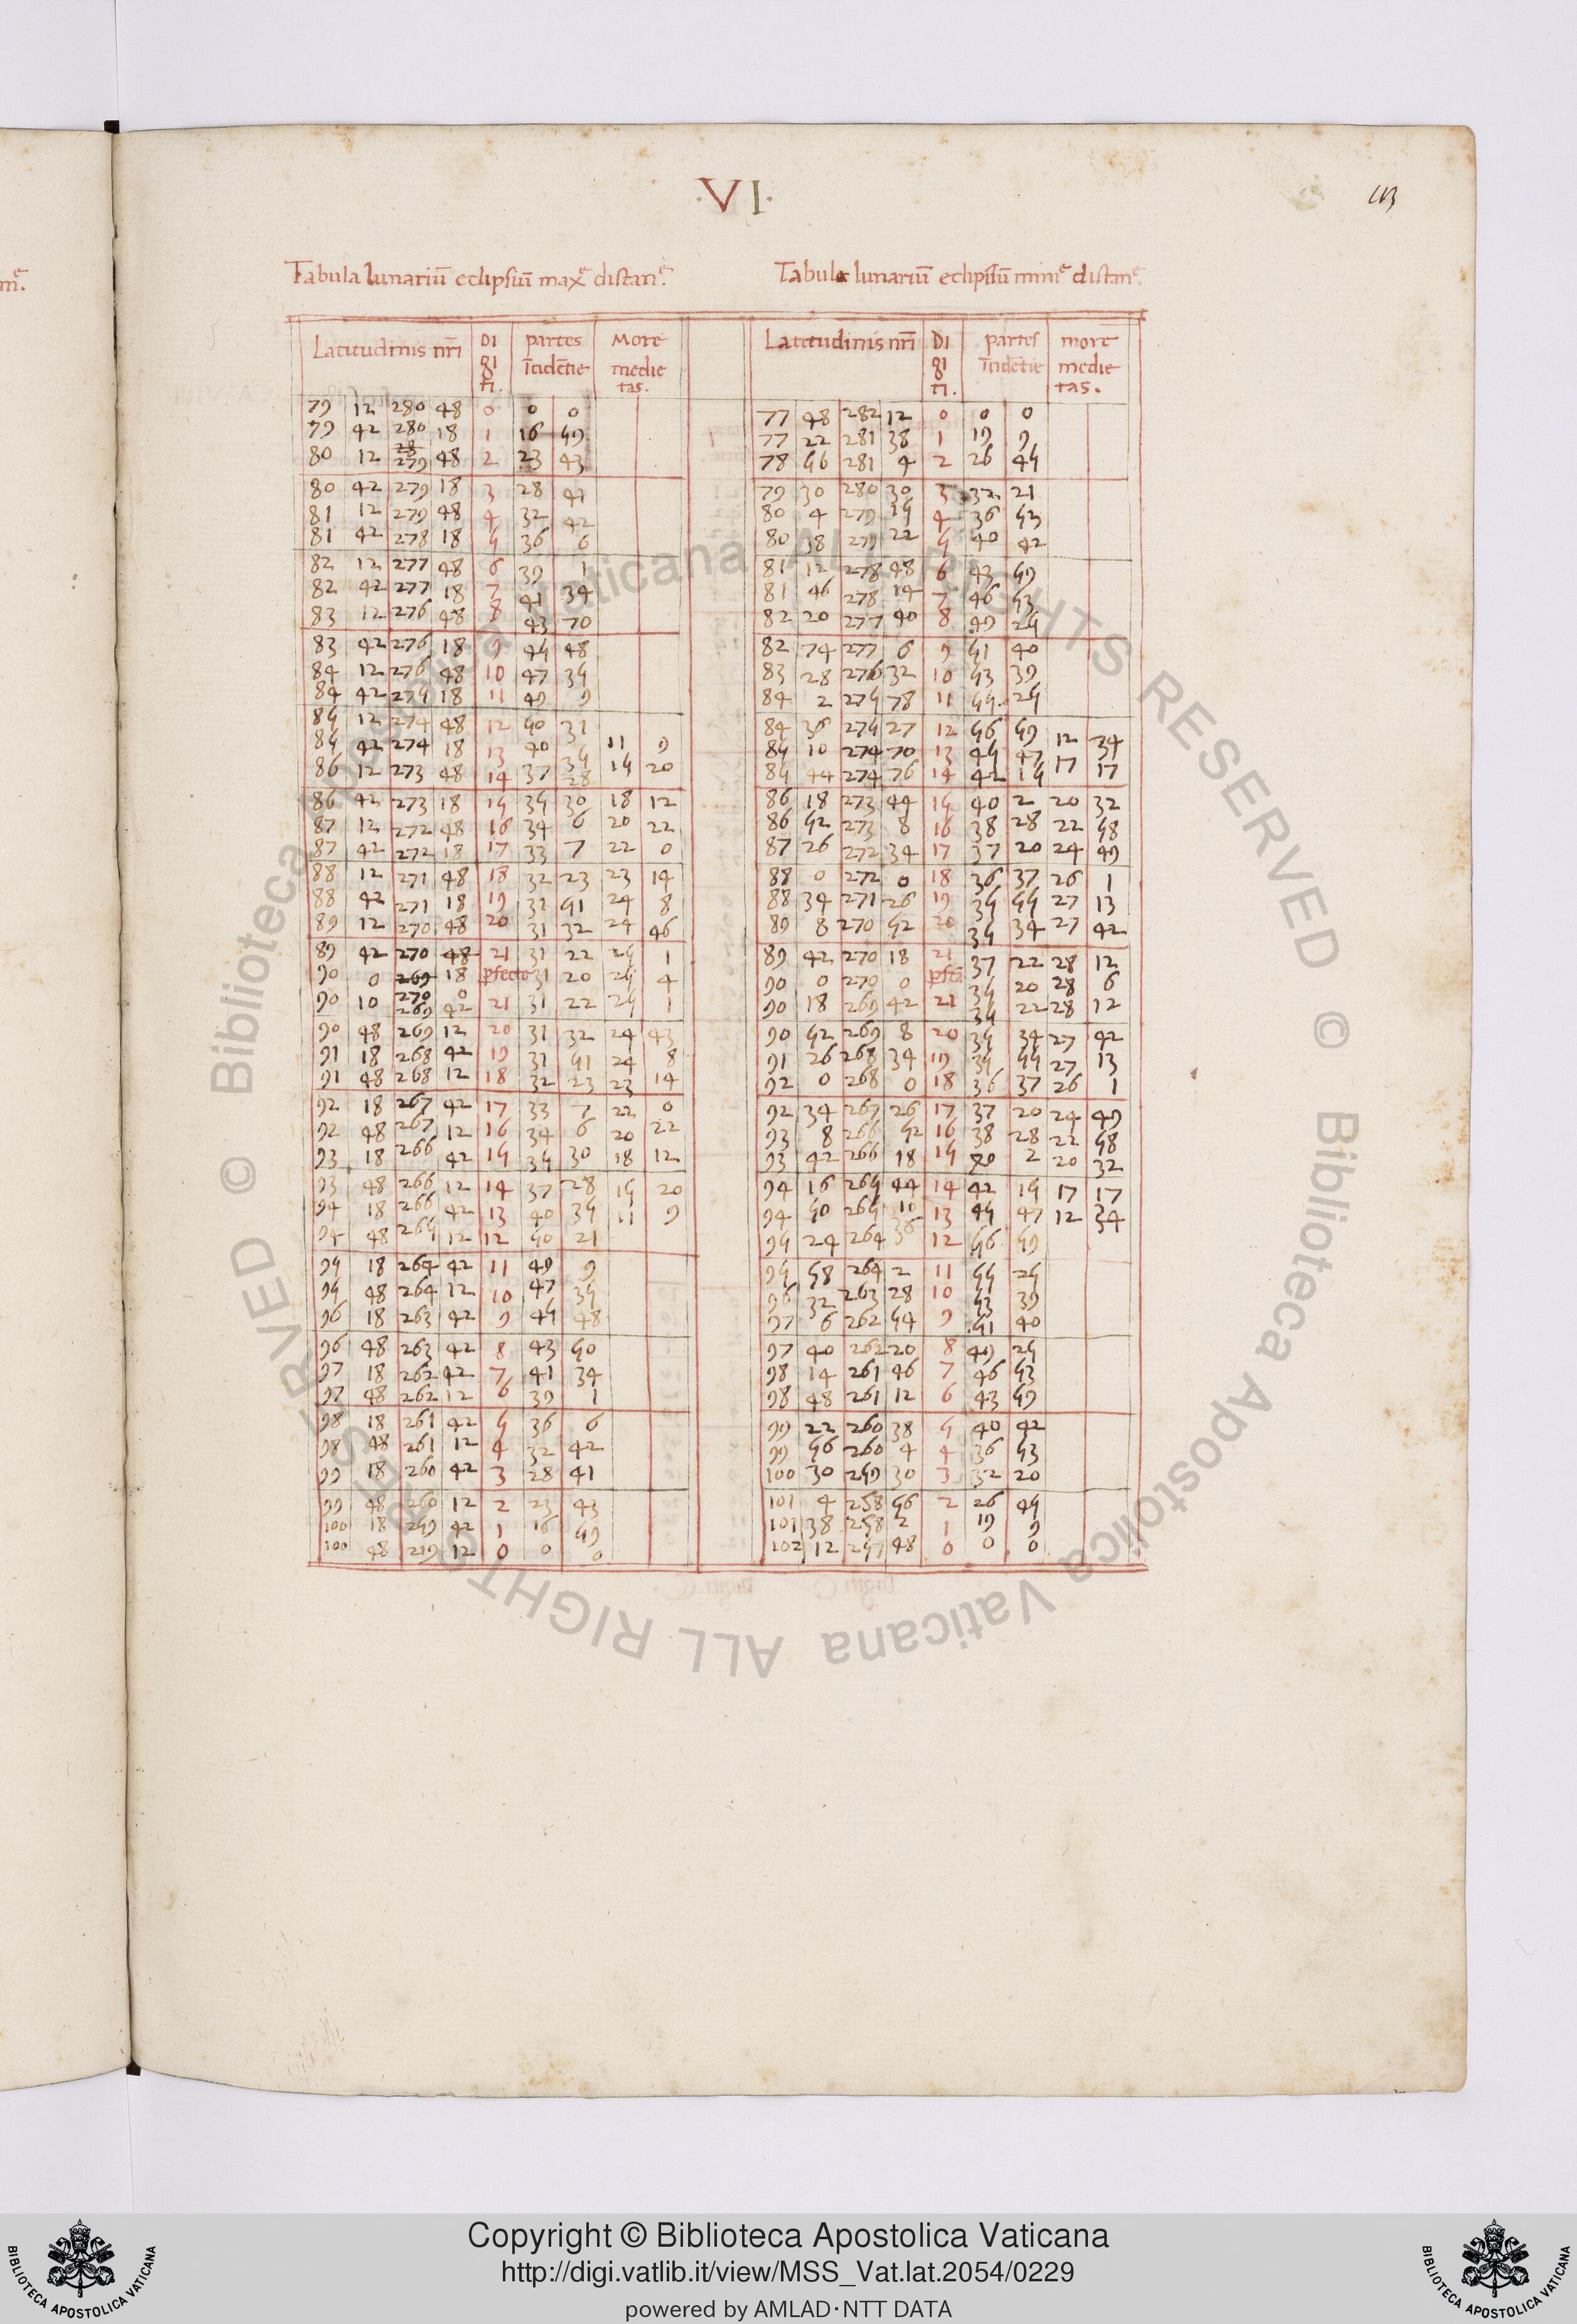 VI
113
Tabula lunariū eclipsiū max^e distan^e.
Latitudinis nr̄i DI gi ti. partes īcidētie More medie tas.
79 12 280 48 0 0 0
79 42 280 18 1 16 59
80 12 279 48 2 23 43
80 42 279 18 3 28 41
81 12 279 48 4 32 42
81 42 278 18 5 36 6
82 12 277 48 6 39 1
82 42 277 18 7 41 34
83 12 276 48 8 43 70
83 42 276 18 9 45 48
84 12 276 48 10 47 35
84 42 275 18 11 49 9
85 12 274 48 12 50 31
85 42 274 18 13 40 35 11 9
86 12 273 48 14 37 28 15 20
86 42 273 18 15 35 30 18 12
87 12 272 48 16 34 6 20 22
87 42 272 18 17 33 7 22 0
88 12 271 48 18 32 23 23 14
88 42 271 18 19 31 51 24 8
89 12 270 48 20 31 32 24 46
89 42 270 48 21 31 22 25 1
90 0 269 18 pfecto 31 20 25 4
90 10 270 0 269 42 21 31 22 25 1
90 48 269 12 20 31 32 24 43
91 18 268 42 19 31 51 24 8
91 48 268 12 18 32 23 23 14
92 18 267 42 17 33 7 22 0
92 48 267 12 16 34 6 20 22
93 18 266 42 15 35 30 18 12
93 48 266 12 14 37 28 15 20
94 18 266 42 13 40 35 11 9
94 48 265 12 12 50 21
95 18 264 42 11 49 9
95 48 264 12 10 47 35
96 18 263 42 9 45 48
96 48 263 42 8 43 50
97 18 262 42 7 41 34
97 48 262 12 6 39 1
98 18 261 42 5 36 6
98 48 261 12 4 32 42
99 18 260 42 3 28 41
99 48 260 12 2 23 43
100 18 259 42 1 16 59
100 48 259 12 0 0 0
Tabula lunariū eclipsiū mini^e distan^e.
Latitudinis nr̄i DI gi ti. partes īcidētie more medie tas.
77 48 282 12 0 0 0
77 22 281 38 1 19 9
78 56 281 4 2 26 45
79 30 280 30 3 32 21
80 4 279 15 4 36 53
80 38 279 22 5 40 42
81 12 278 48 6 43 59
81 46 278 14 7 46 53
82 20 277 40 8 49 25
82 74 277 6 9 51 40
83 28 276 32 10 53 39
84 2 275 78 11 55 25
84 36 275 27 12 56 59 12 34
85 10 274 70 13 45 47 17 17
85 44 274 76 14 42 15
86 18 273 44 15 40 2 20 32
86 52 273 8 16 38 28 22 58
87 26 272 34 17 37 20 24 49
88 0 272 0 18 36 37 26 1
88 34 271 26 19 35 55 27 13
89 8 270 52 20 35 34 27 42
89 42 270 18 21 37 22 28 12
90 0 270 0 pfcā 35 20 28 6
90 18 269 42 21 35 22 28 12
90 52 269 8 20 35 34 27 42
91 26 268 34 19 35 55 27 13
92 0 268 0 18 36 37 26 1
92 34 267 26 17 37 20 24 49
93 8 266 52 16 38 28 22 58
93 42 266 18 15 40 2 20 32
94 16 265 44 14 42 15 17 17
94 50 265 10 13 45 47 12 34
95 24 264 36 12 56 59
95 58 264 2 11 55 25
96 32 263 28 10 53 39
97 6 262 54 9 51 40
97 40 262 20 8 49 25
98 14 261 46 7 46 53
98 48 261 12 6 43 59
99 22 260 38 5 40 42
99 56 260 4 4 36 53
100 30 259 30 3 32 20
101 4 258 56 2 26 45
101 38 258 2 1 19 9
102 12 257 48 0 0 0
Copyright © Biblioteca Apostolica Vaticana
http://digi.vatlib.it/view/MSS_Vat.lat.2054/0229
powered by AMLAD·NTT DATA
BIBLIOTECA APOSTOLICA VATICANA
BIBLIOTECA APOSTOLICA VATICANA
© Biblioteca Apostolica Vaticana ALL RIGHTS RESERVED © Biblioteca Apostolica Vaticana ALL RIGHTS RESERVED